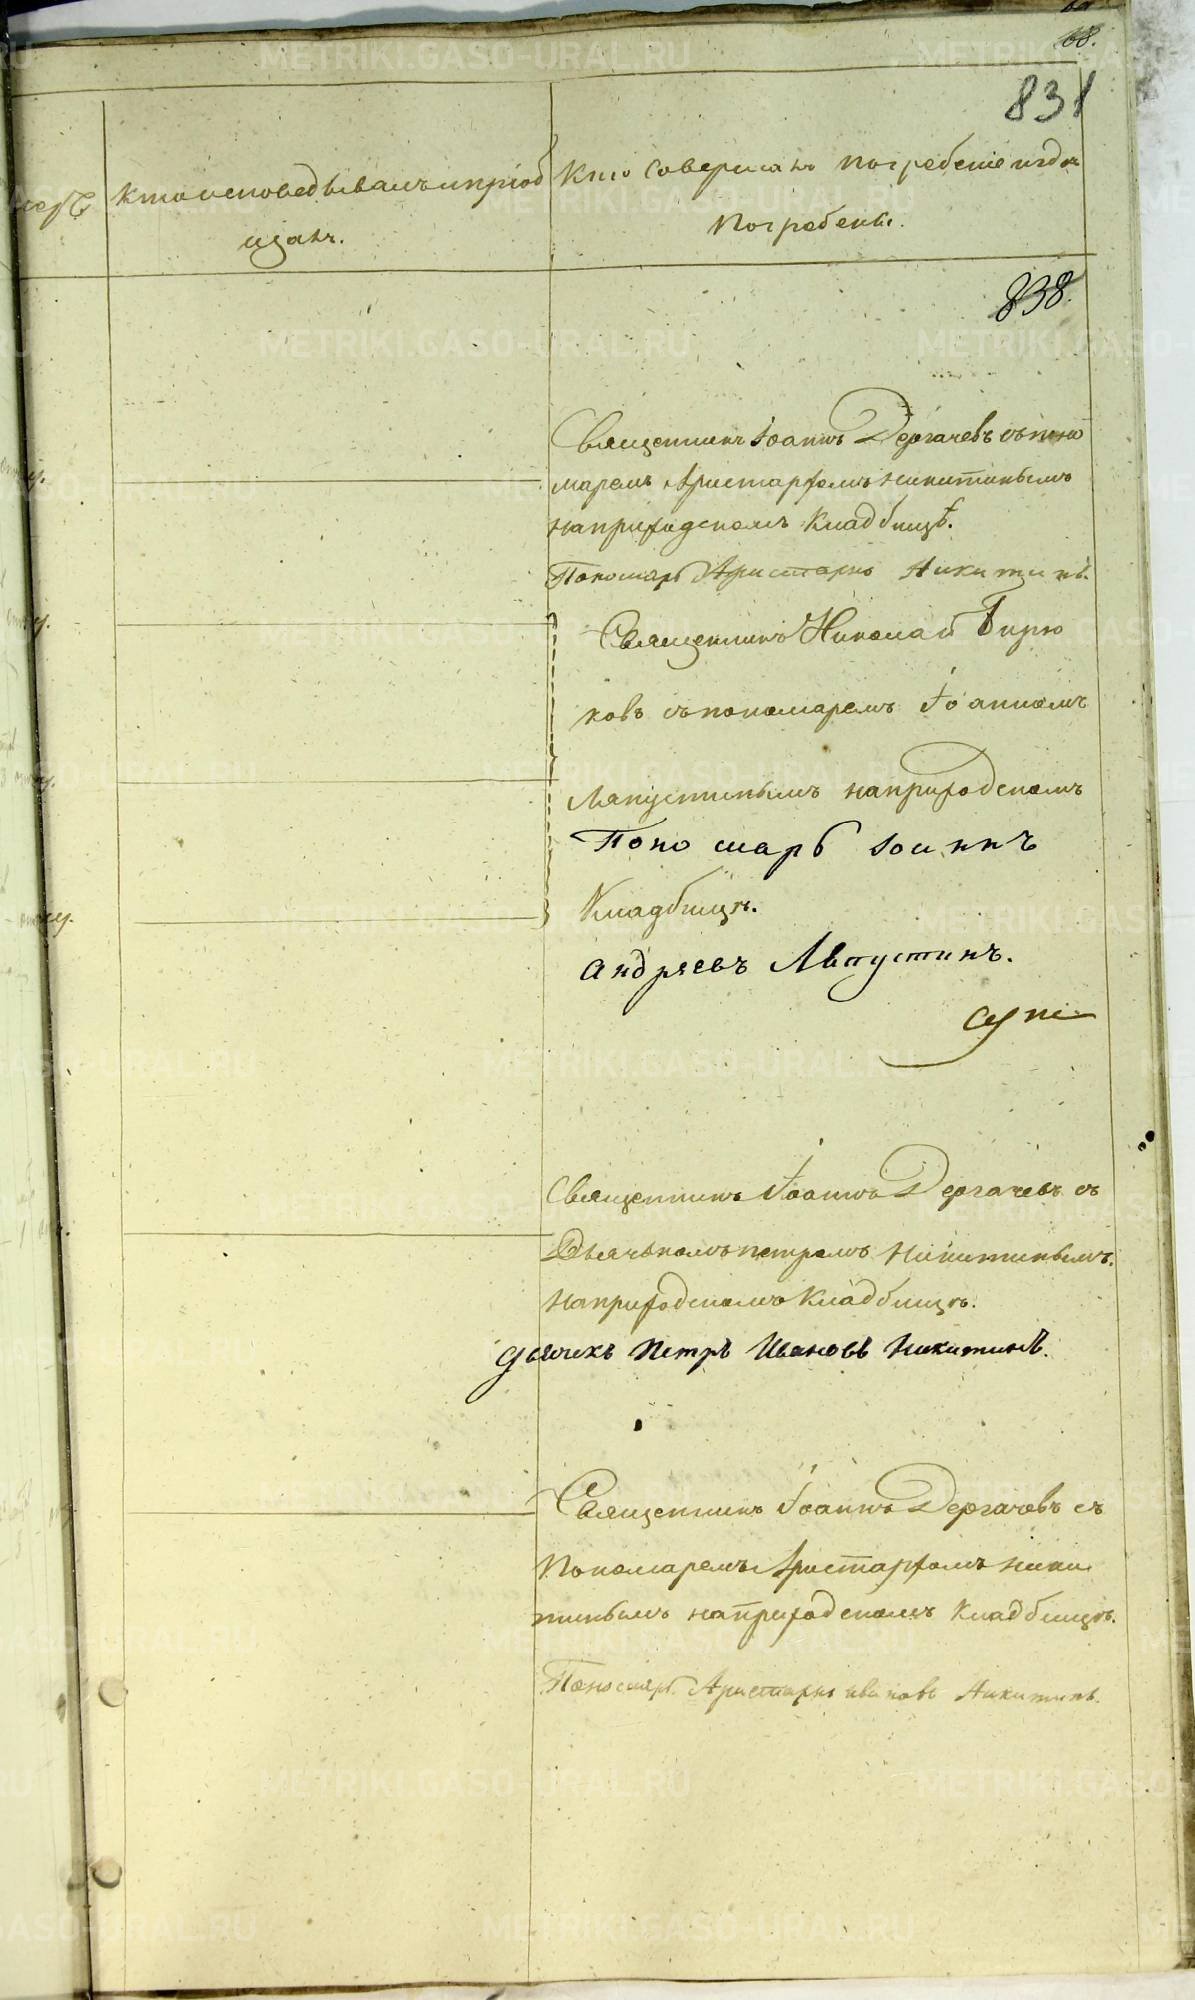 68.
831
Кто исповедывалъ и приоб
щалъ.
Кто совершалъ погребеніе и гдѣ
погребены.
838.
Священникъ Іоаннъ Дергачевъ съ поно
маремъ Аристархомъ Никитинымъ
на приходскомъ кладбищѣ.
Пономарь Аристархъ Никитинъ.
Священникъ Николай Бирю
ковъ съ пономаремъ Іоанномъ
Лапустинымъ на приходскомъ
Пономарь Іоаннъ
Кладбищѣ.
Андреевъ Лапустинъ.
Священникъ Іоаннъ Дергачевъ съ
Дьячкомъ Петромъ Никитинымъ.
на приходскомъ Кладбищѣ.
Дьячекъ Петръ Ивановъ Никитинъ.
Священникъ Іоаннъ Дергачевъ съ
Пономаремъ Аристархомъ Ники
тинымъ на приходскомъ Кладбищѣ.
Пономарь Аристархъ Ивановъ Никитинъ.
METRIKI.GASO-URAL.RU